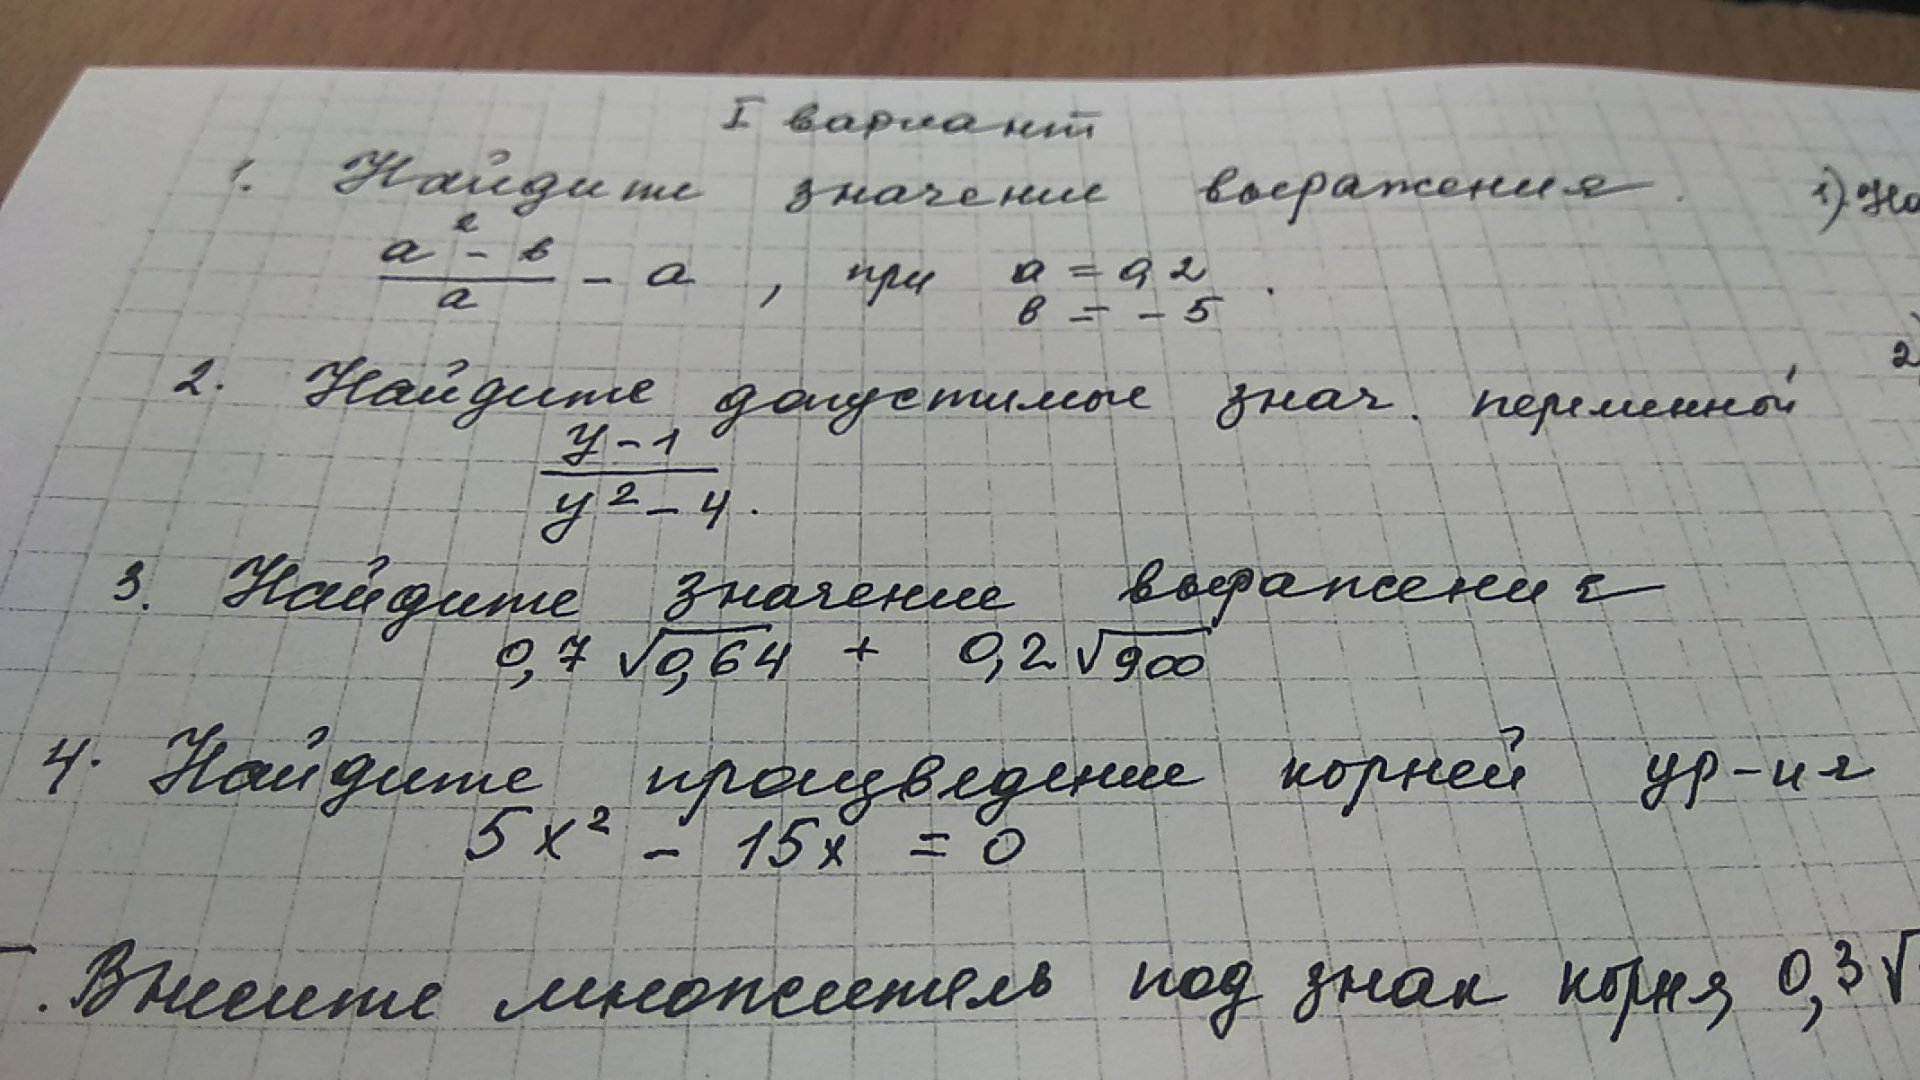 I вариант
1. Найдите значение выражения.
(a² - в)/a - a, при a = 0,2
в = -5.
2. Найдите допустимые знач. переменной
(y-1)/(y² - 4).
3. Найдите значение выражения
0,7 √0,64 + 0,2 √900
4. Найдите произведение корней ур-ия
5x² - 15x = 0
Внесите множитель под знак корня, 0,3√
1). На
2)